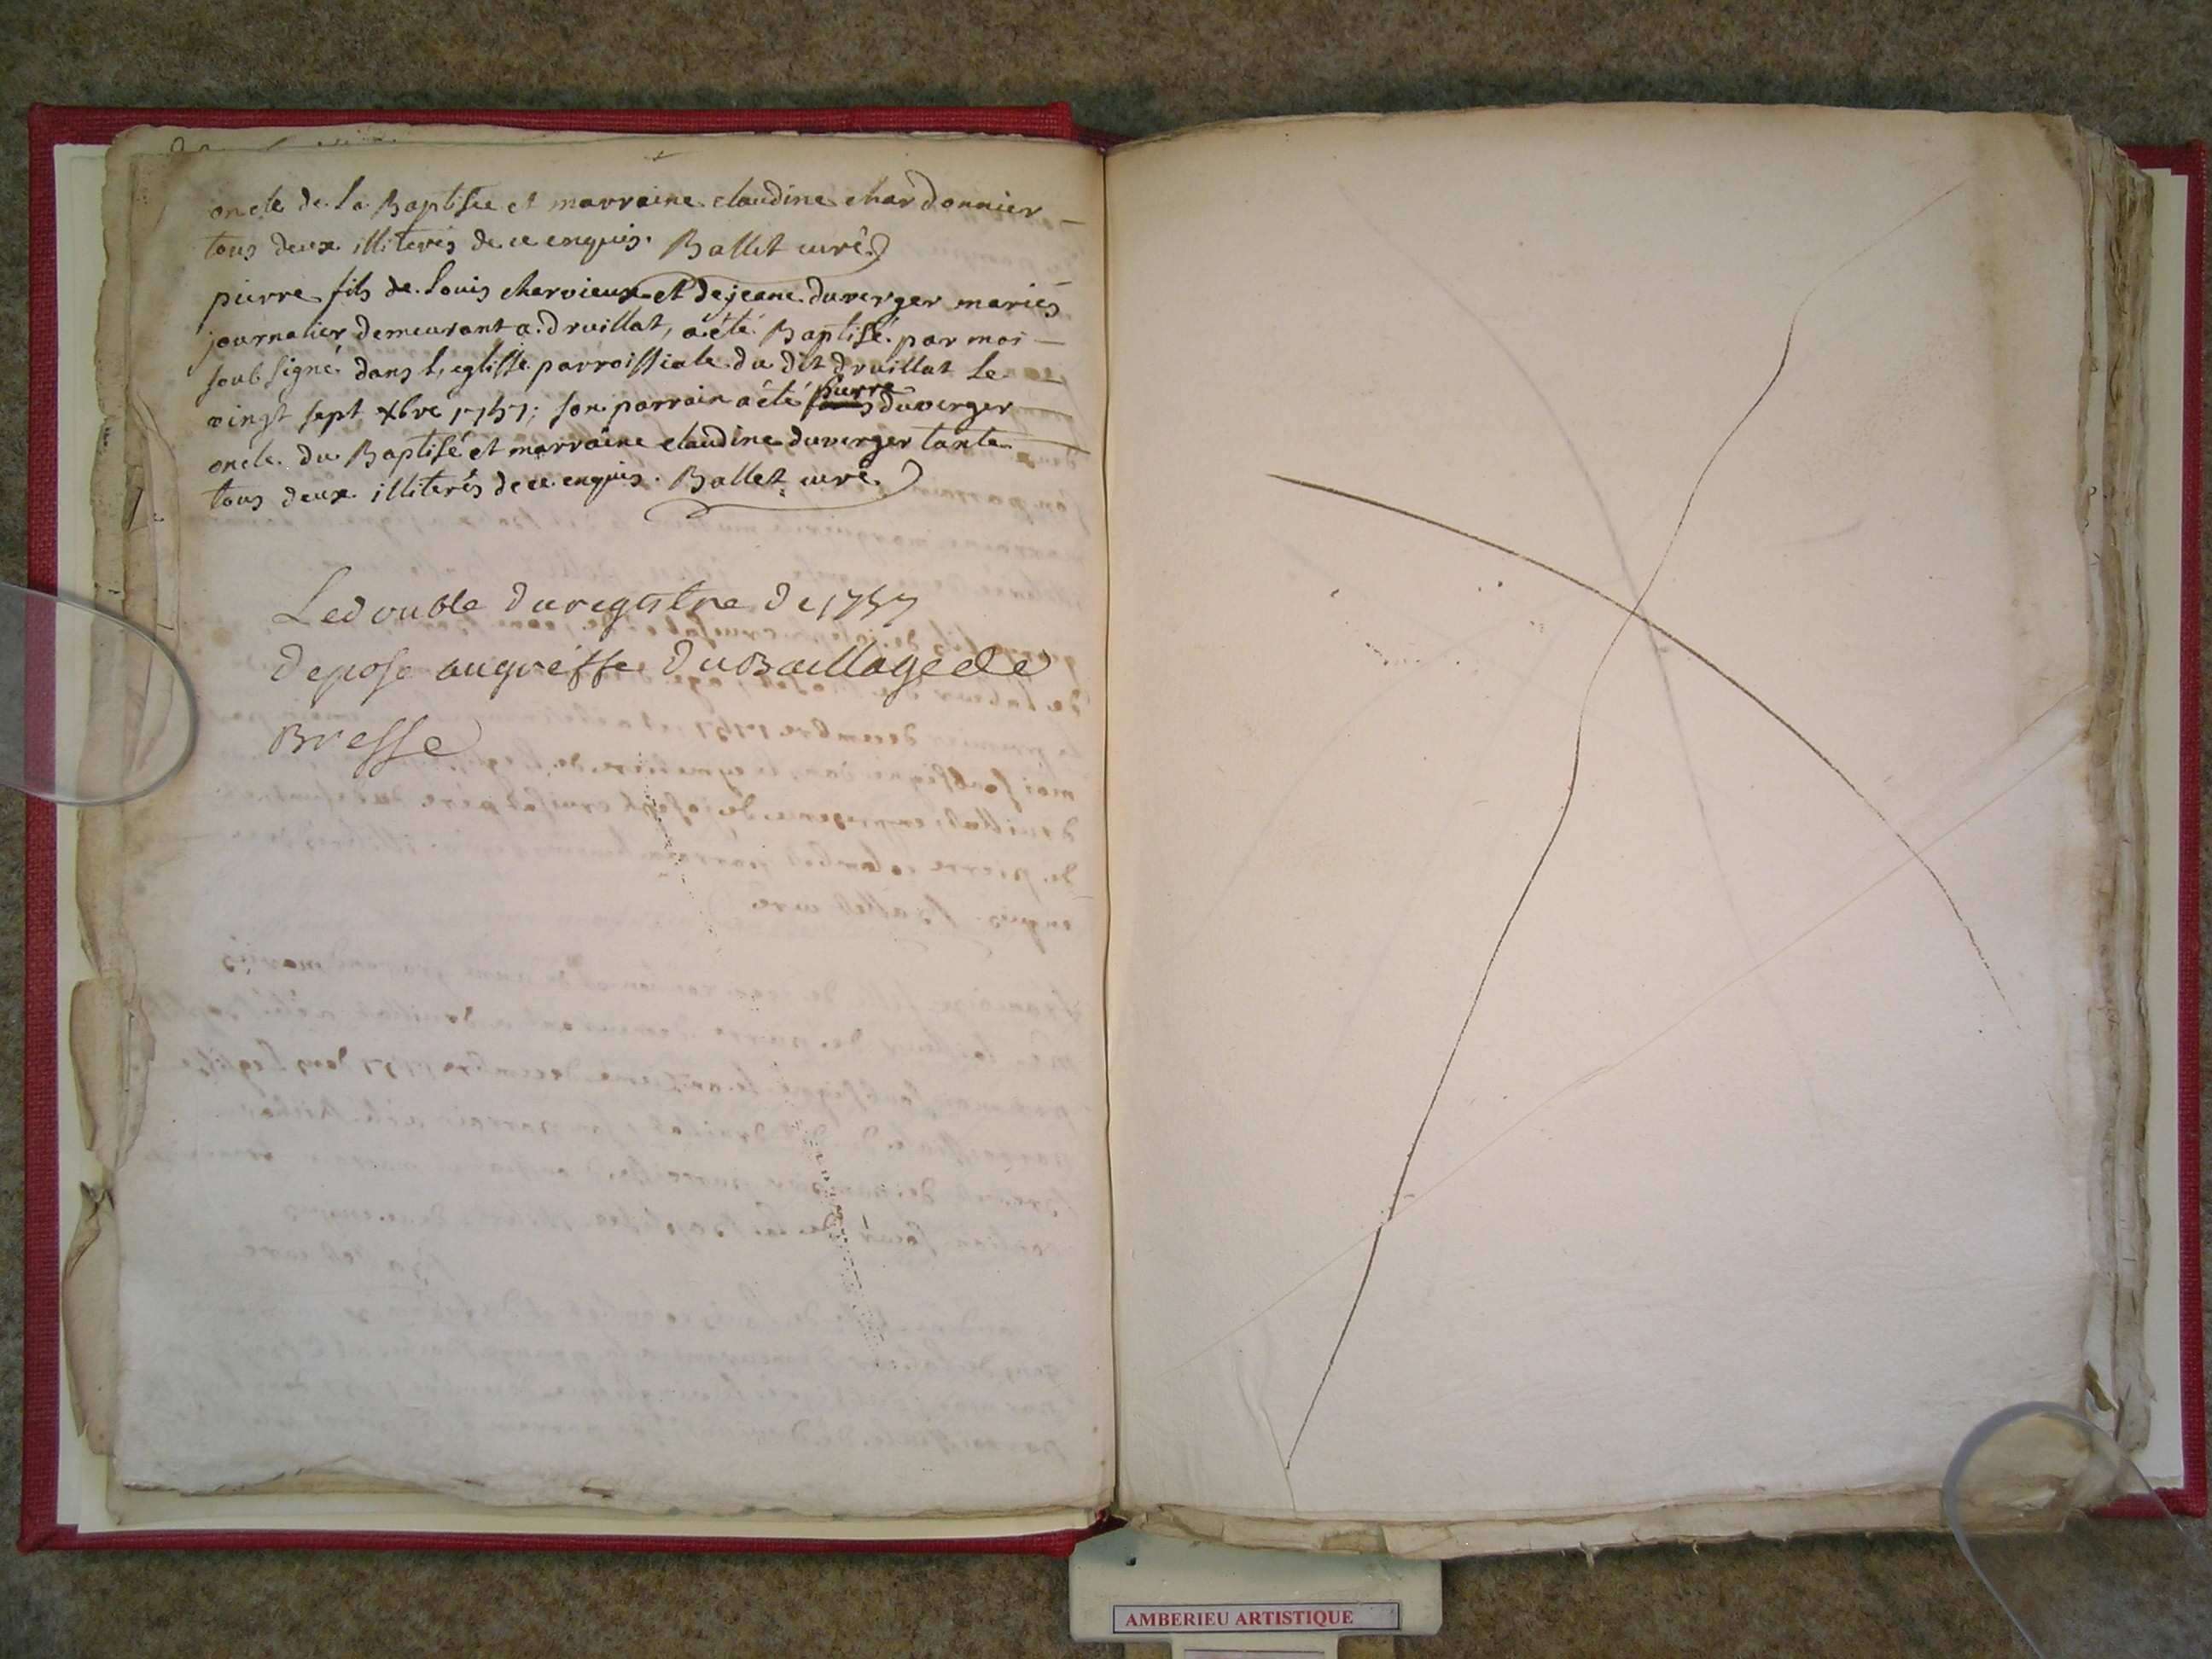 oncle de la Baptisée et marraine claudine chardonnier
tous deux illiterés de ce enquis. Ballet curé
pierre fils de louis charvieux et de jeane duverger mariés
journalier demeurant a druillat, a été Baptisé par moi
soubsigné dans l'eglisse parroissiale du dit druillat le
vingt sept xbre 1757; son parrain a été pierre duverger
oncle du Baptisé et marraine claudine duverger tante
tous deux illiterés de ce enquis. Ballet curé
Le double du registre de 1757
depose au greffe du Baillage de
Bresse
AMBERIEU ARTISTIQUE